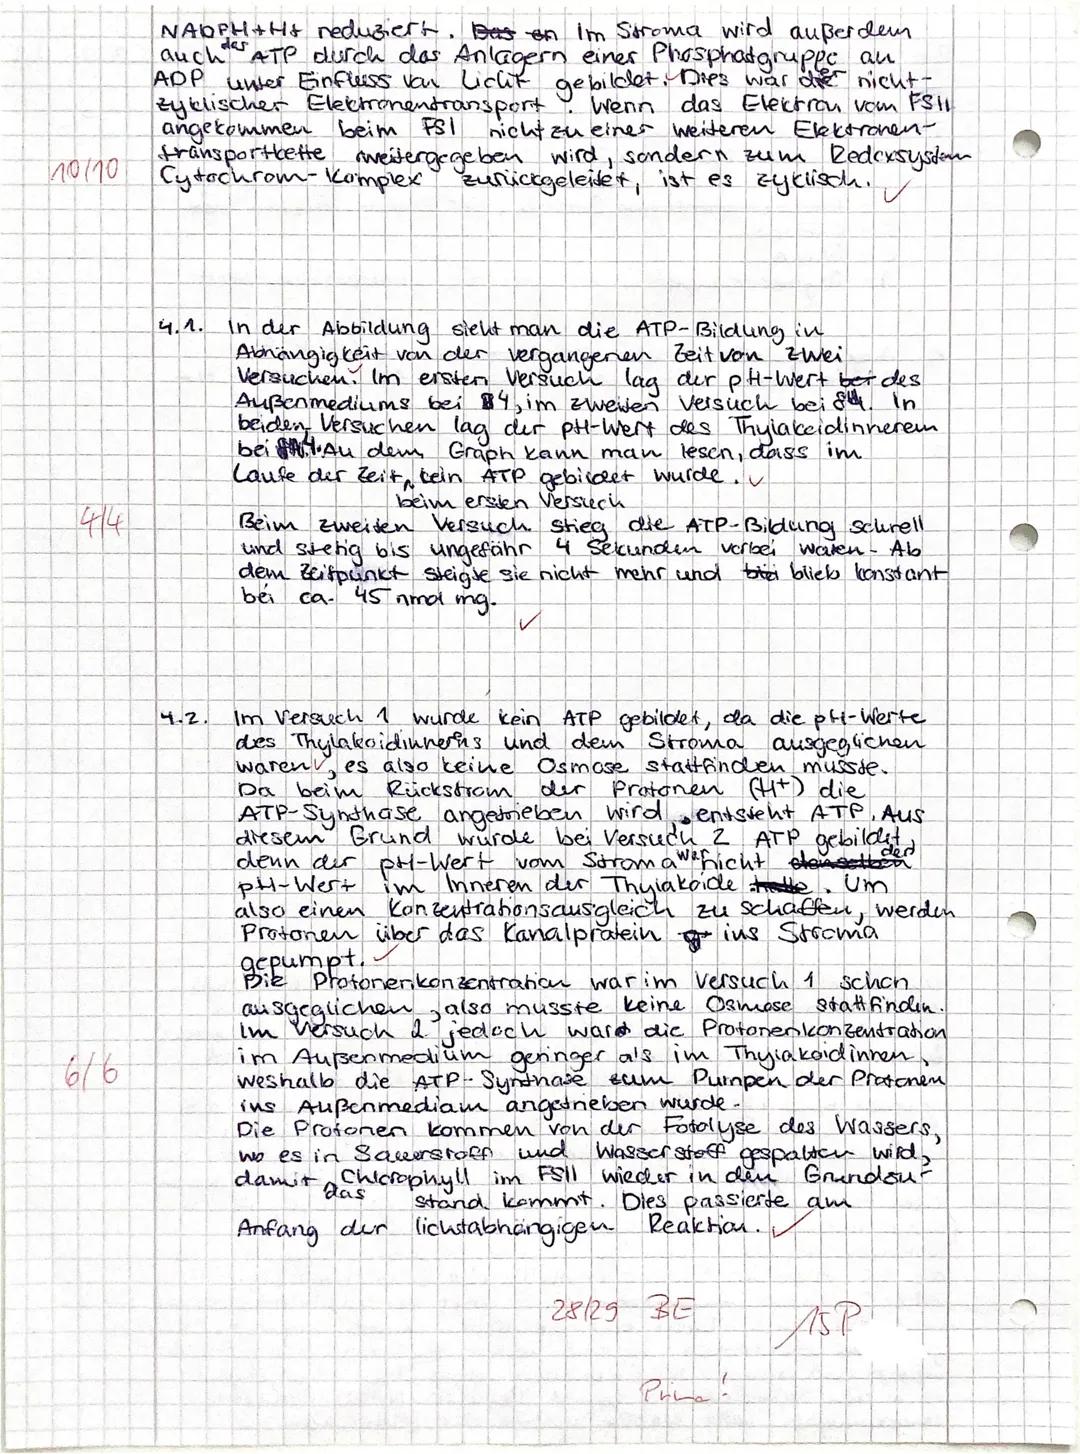 NADPH+H+ reduziert. Das en Im Stroma wird außerdem
auch das ATP durch das Anlagern einer Phosphatgruppe an
ADP unter Einfluss von Licht gebildet. Dies war der nicht-
zyklischer Elektronentransport. Wenn das Elektron vom FSII
angekommen beim FSI nicht zu einer weiteren Elektronen-
transportkette weitergegeben wird, sondern zum Redoxsystem
10/10 Cytochrom-Komplex zurückgeleitet, ist es zyklisch.
4.1. In der Abbildung sieht man die ATP-Bildung in
Abhängigkeit von der vergangenen Zeit von zwei
Versuchen. Im ersten Versuch lag der pH-Wert bei des
Außenmediums bei 4, im zweiten Versuch bei 8,4. In
beiden Versuchen lag der pH-Wert des Thylakoidinnerem
bei 4. Au dem Graph kann man lesen, dass im
Laufe der Zeit, kein ATP gebildet wurde.
beim ersten Versuch
4/4 Beim zweiten Versuch stieg die ATP-Bildung schnell
und stetig bis ungefähr 4 Sekunden vorbei waren. Ab
dem Zeitpunkt steigte sie nicht mehr und blieb konstant
bei ca. 45 nmol mg.
4.2. Im Versuch 1 wurde kein ATP gebildet, da die pH-Werte
des Thylakoidinnerns und dem Stroma ausgeglichen
waren, es also keine Osmose stattfinden musste.
Da beim Rückstrom der Protonen (H+) die
ATP-Synthase angetrieben wird, entsteht ATP. Aus
diesem Grund wurde bei Versuch 2 ATP gebildet,
denn der pH-Wert vom Stroma war nicht denselben der
pH-Wert im Inneren der Thylakoide hatte. Um
also einen Konzentrationsausgleich zu schaffen, werden
Protonen über das Kanalprotein ins Stroma
gepumpt.
Die Protonenkonzentration war im Versuch 1 schon
ausgeglichen, also musste keine Osmose stattfinden.
Im Versuch 2 jedoch war die Protonenkonzentration
im Außenmedium geringer als im Thylakoidinnen,
6/6 weshalb die ATP-Synthase zum Pumpen der Protonen
ins Außenmedium angetrieben wurde.
Die Protonen kommen von der Fotolyse des Wassers,
wo es in Sauerstoff und Wasserstoff gespalten wird,
damit das Chlorophyll im FSII wieder in den Grundzu-
stand kommt. Dies passierte am
Anfang der lichtabhängigen Reaktion.
28/29 BE 15P
Prima!